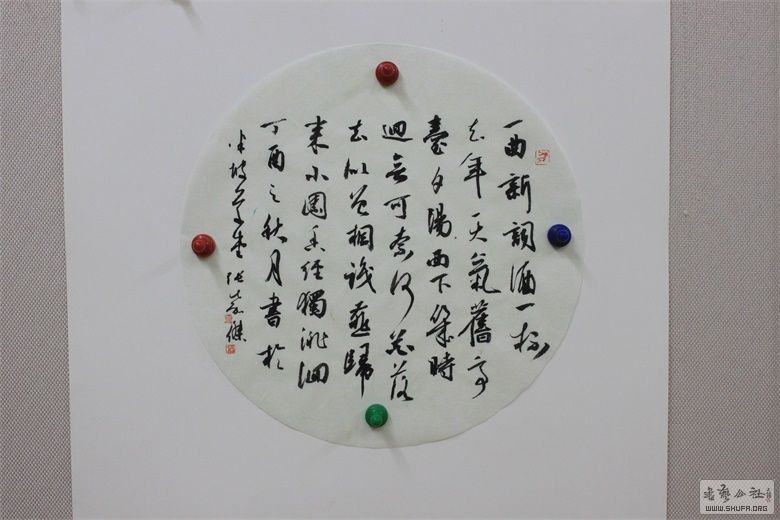 一曲新詞酒一杯
去年天氣舊亭
臺夕陽西下幾時
迴無可奈何花落
去似曾相識燕歸
來小園香徑獨徘徊
丁酉之秋月書於
半坡 堂 張 傑
書藝公社
WWW.SHUFA.ORG